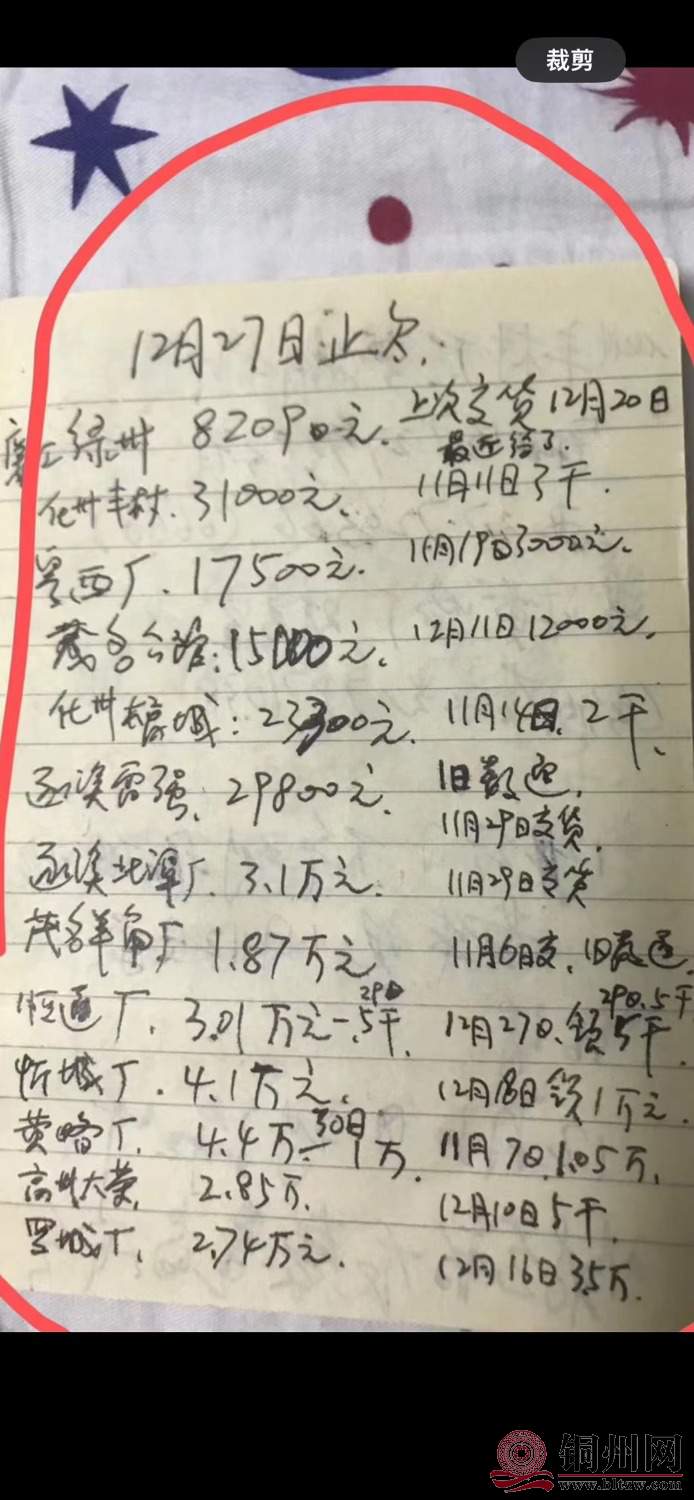 裁剪
12月27日止欠.
廉江绿州 82090元. 上次支货12月20日
最近给了.
化州丰村. 31000元. 11月11日3千.
粤西厂. 17500元. 11月19日30000元.
茂名公馆:15000元. 12月11日12000元.
化州 城:23300元. 11月14日.2千、
遂溪雷强. 29800元. 旧数
11月29日支货.
遂溪北潭厂. 3.1万元. 11月29日支货
茂名羊角厂 1.87万元 11月6日支.旧
29日 29日.5千
恒通厂. 3.01万元-.5千. 12月27日.领5千.
忻城厂. 4.1万元. 12月18日领1万元.
30日
黄略厂. 4.4万-1万. 11月7日.1.05万.
高州大荣. 2.85万. 12月10日5千.
罗城厂. 2.74万元. 12月16日3.5万.
铜州网
www.bltzw.com